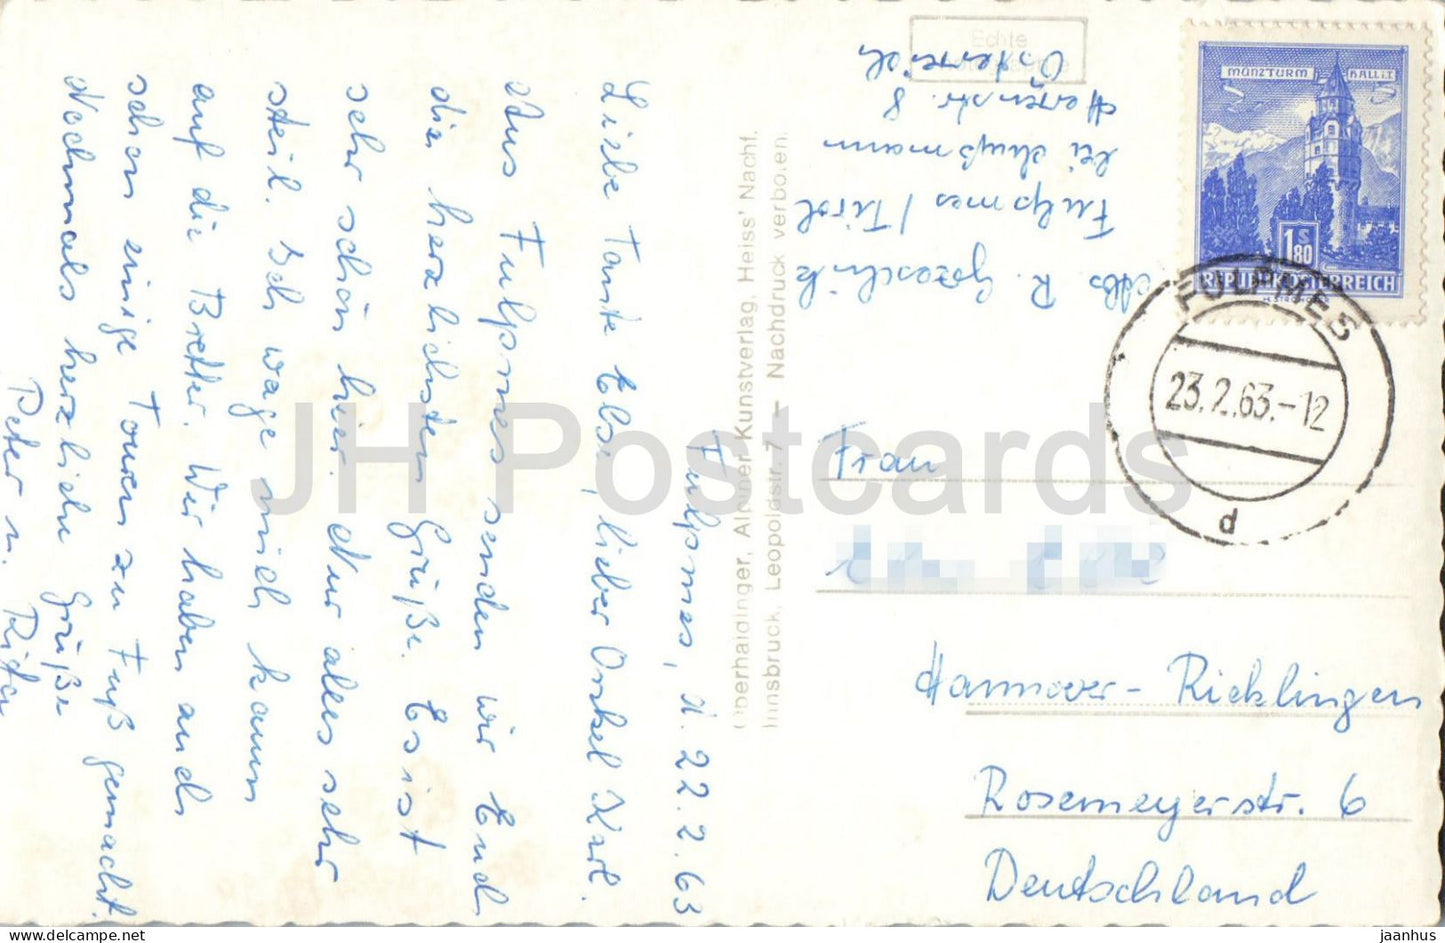 Fulpmes, d. 22.2.63
Liebe Tante Els, lieber Onkel Karl.
Aus Fulpmes senden wir Euch
die herzlichsten Grüße. Es ist
sehr schön hier. Nur alles sehr
steil. Ich wage mich kaum
auf die Bretter. Wir haben auch
schon einige Touren zu Fuß gemacht.
Nochmals herzliche Grüße
Peter u. Rita
Oberhaidinger, Alpiner Kunstverlag, Heiss' Nachf.
Innsbruck, Leopoldstr. 7 — Nachdruck verboten.
Abs R.
Fulpmes / Tirol
bei
Herrenstr. 8
Österreich
Echte
MÜNZTURM HALL i.T.
1 S 80
REPUBLIK ÖSTERREICH
FULPMES
23.2.63.-12
d
Frau
Hannover - Ricklingen
Rosemeyerstr. 6
Deutschland
JH Postcards
jaanhus @ delcampe.net